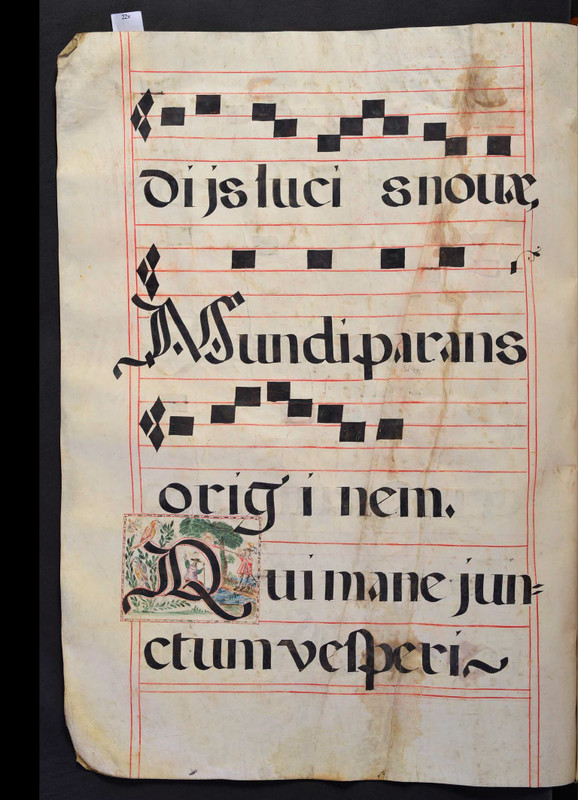 22v
dijs luci s nouæ,
Mundi parans
orig i nem.
Qui mane jun=
ctum veſperi~